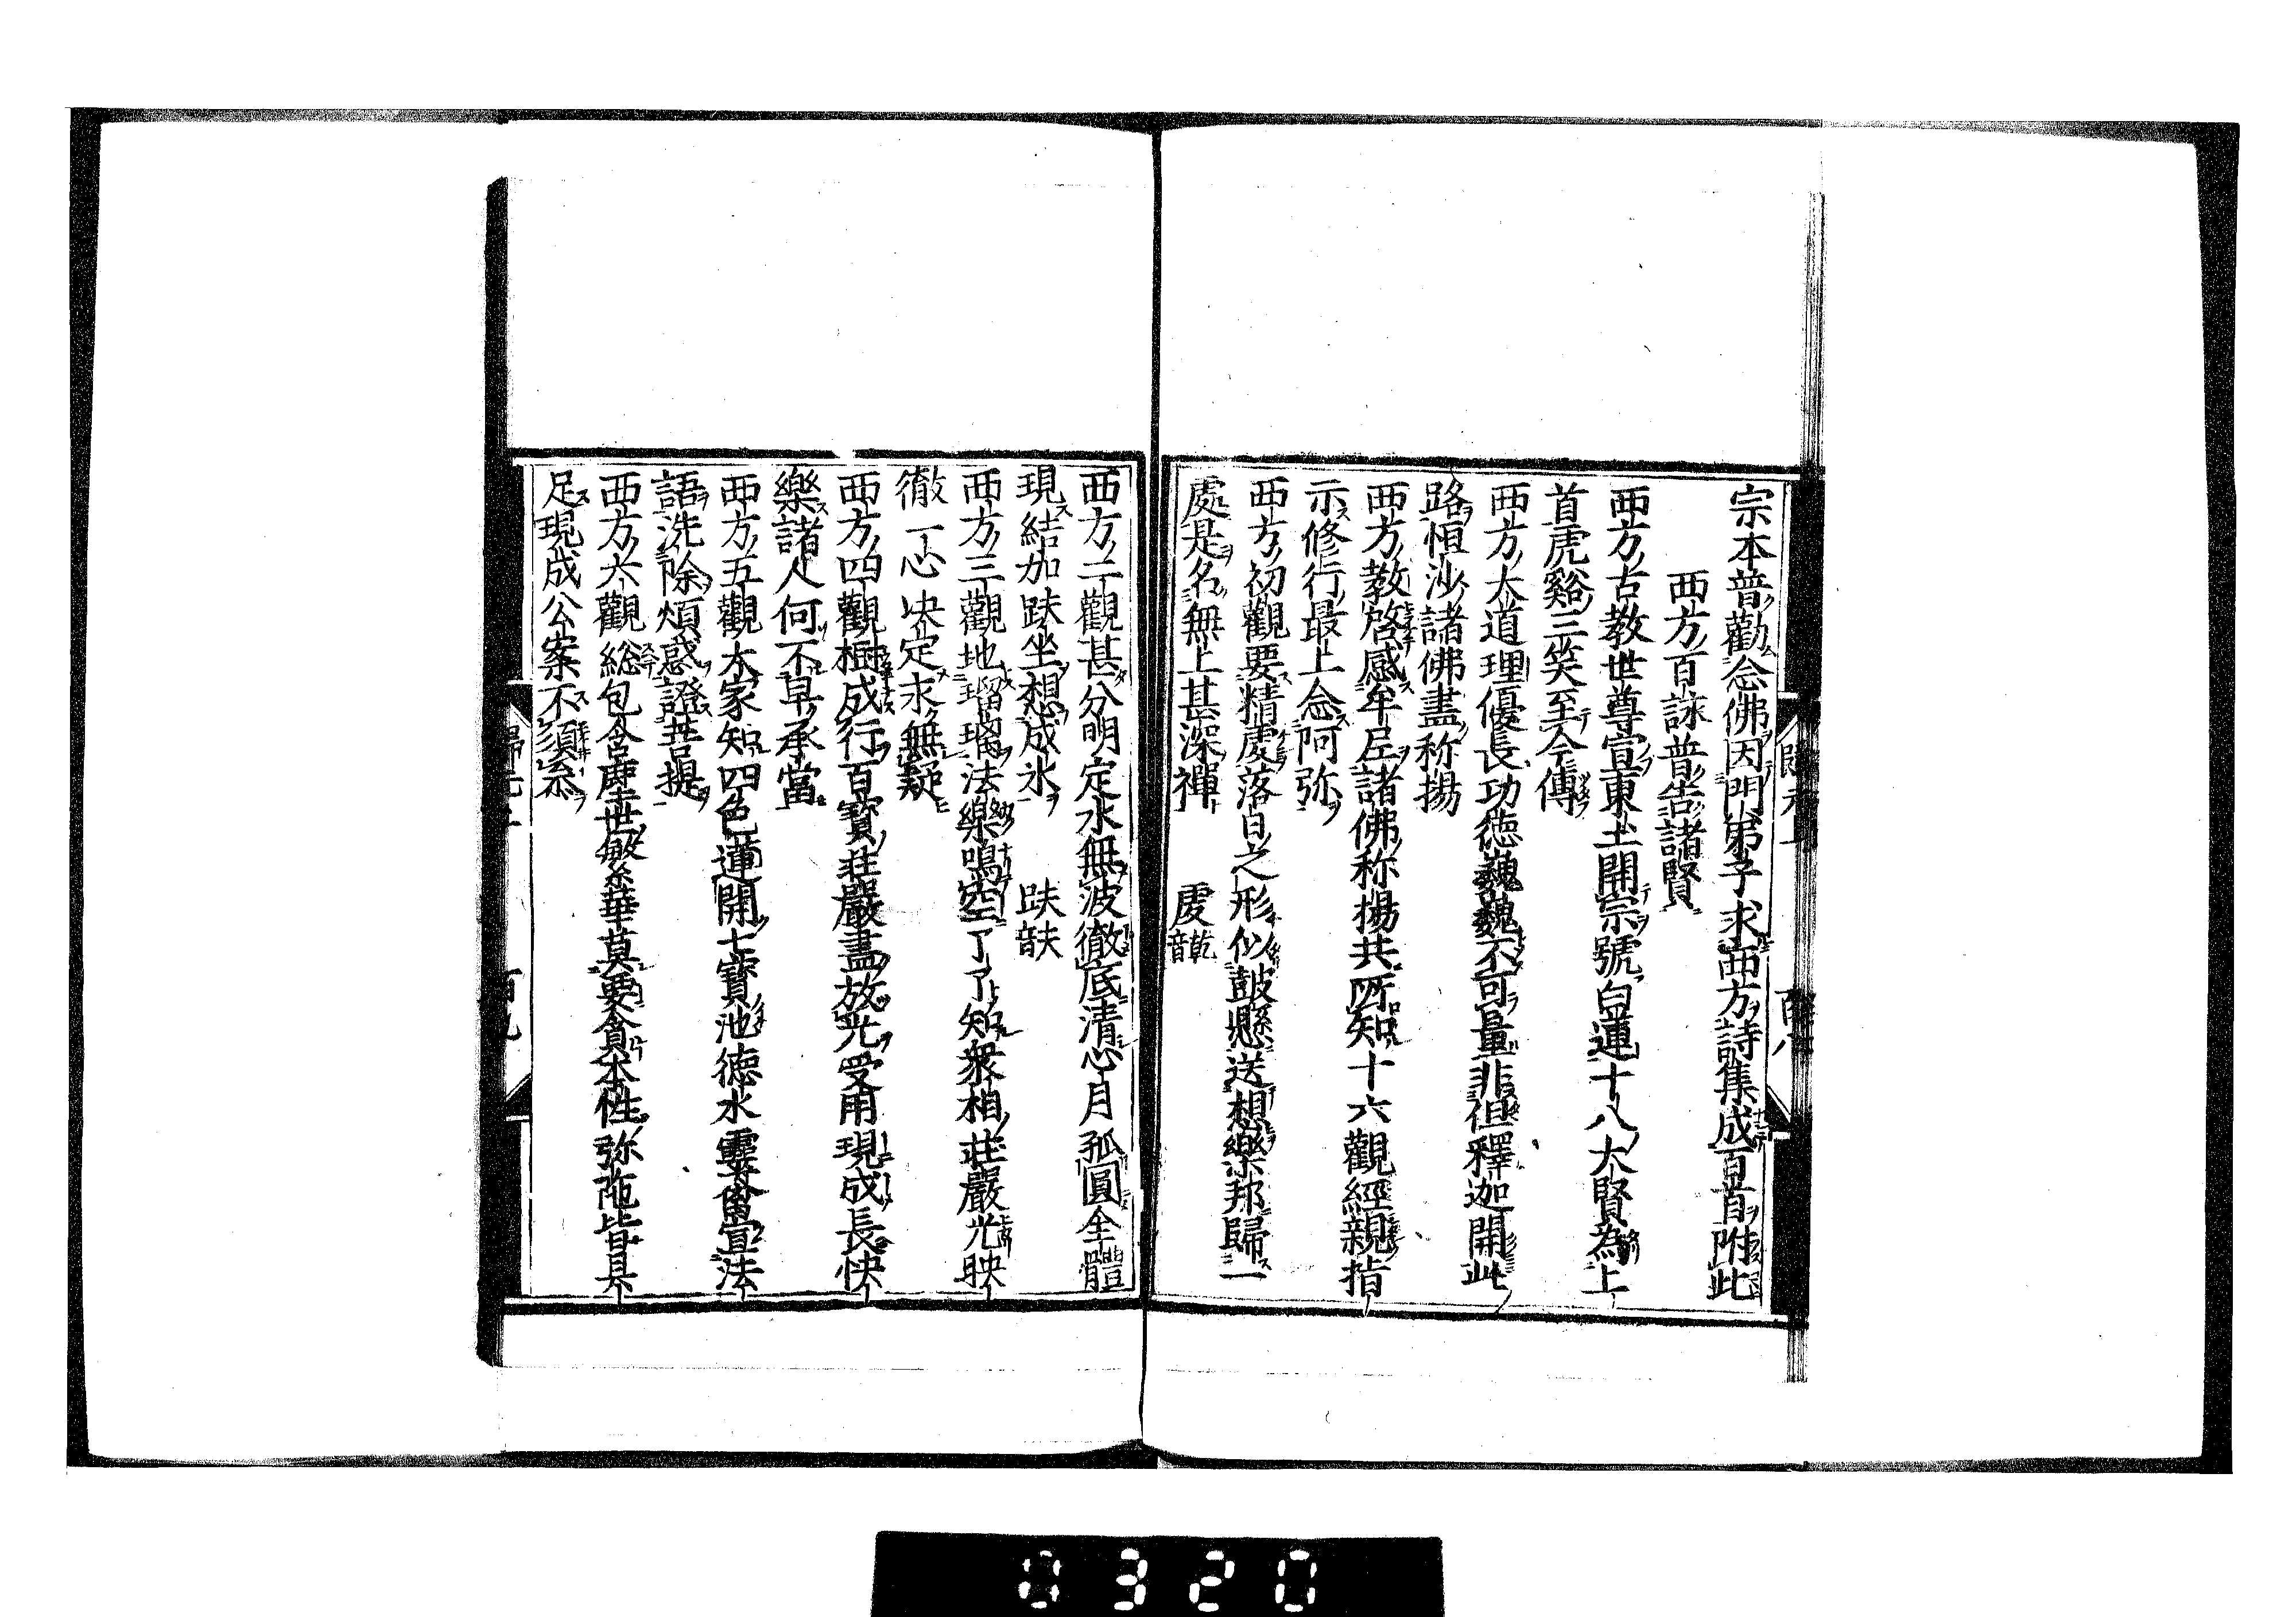 宗本普勸念佛因門弟子求西方詩集成百首附此
西方百詠普告諸賢
西方古教世尊宣東土開宗號白蓮十八大賢為上
首虎谿三笑至今傳
西方大道理優長功德巍巍不可量非但釋迦開此
路恒沙諸佛盡称揚
西方教啓感牟尼諸佛称揚共所知十六觀經親指
示修行最上念阿弥
西方初觀要精虔落日之形似鼓懸送想樂邦歸一
處是名無上甚深禪 虔音乾
西方二觀甚分明定水無波徹底清心月孤圓全體
現結加趺坐想成氷 趺音夫
西方三觀地瑠璃法樂鳴空了了知衆相莊嚴光映
徹一心决定求無疑
西方四觀樹成行百寳莊嚴盡放光受用現成長快
樂諸人何不早承當
西方五觀大家知四色蓮開七寳池德水靈禽宣法
語洗除煩惑證菩提
西方六觀総包含塵世繁華莫要貪本性弥陁皆具
足現成公案不須叅
歸元上
百九
0320